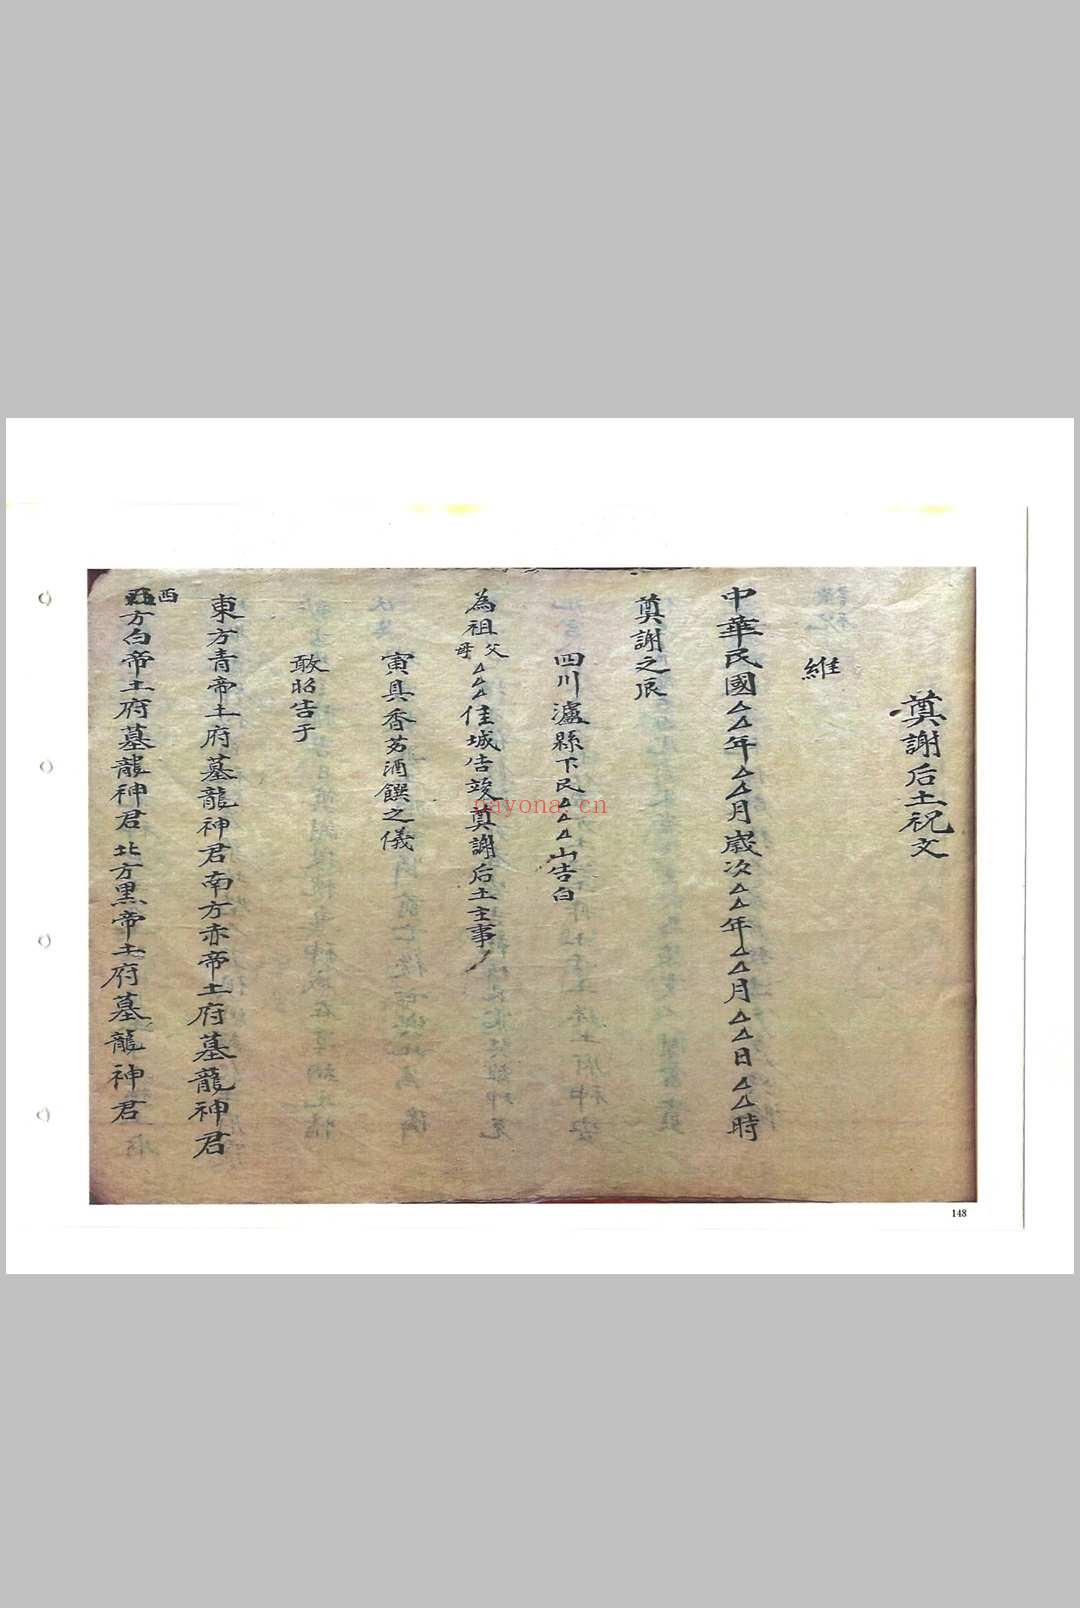 奠謝后土祝文
維
中華民國△△年△△月歲次△△年△△月△△日△△時
奠謝之辰
四川瀘縣下民△△△山告白
為祖父母△△△佳城告竣奠謝后土主事
寅具香芴酒饌之儀
敢昭告于
東方青帝土府墓龍神君南方赤帝土府墓龍神君
西方白帝土府墓龍神君北方黑帝土府墓龍神君
nayona.cn
148